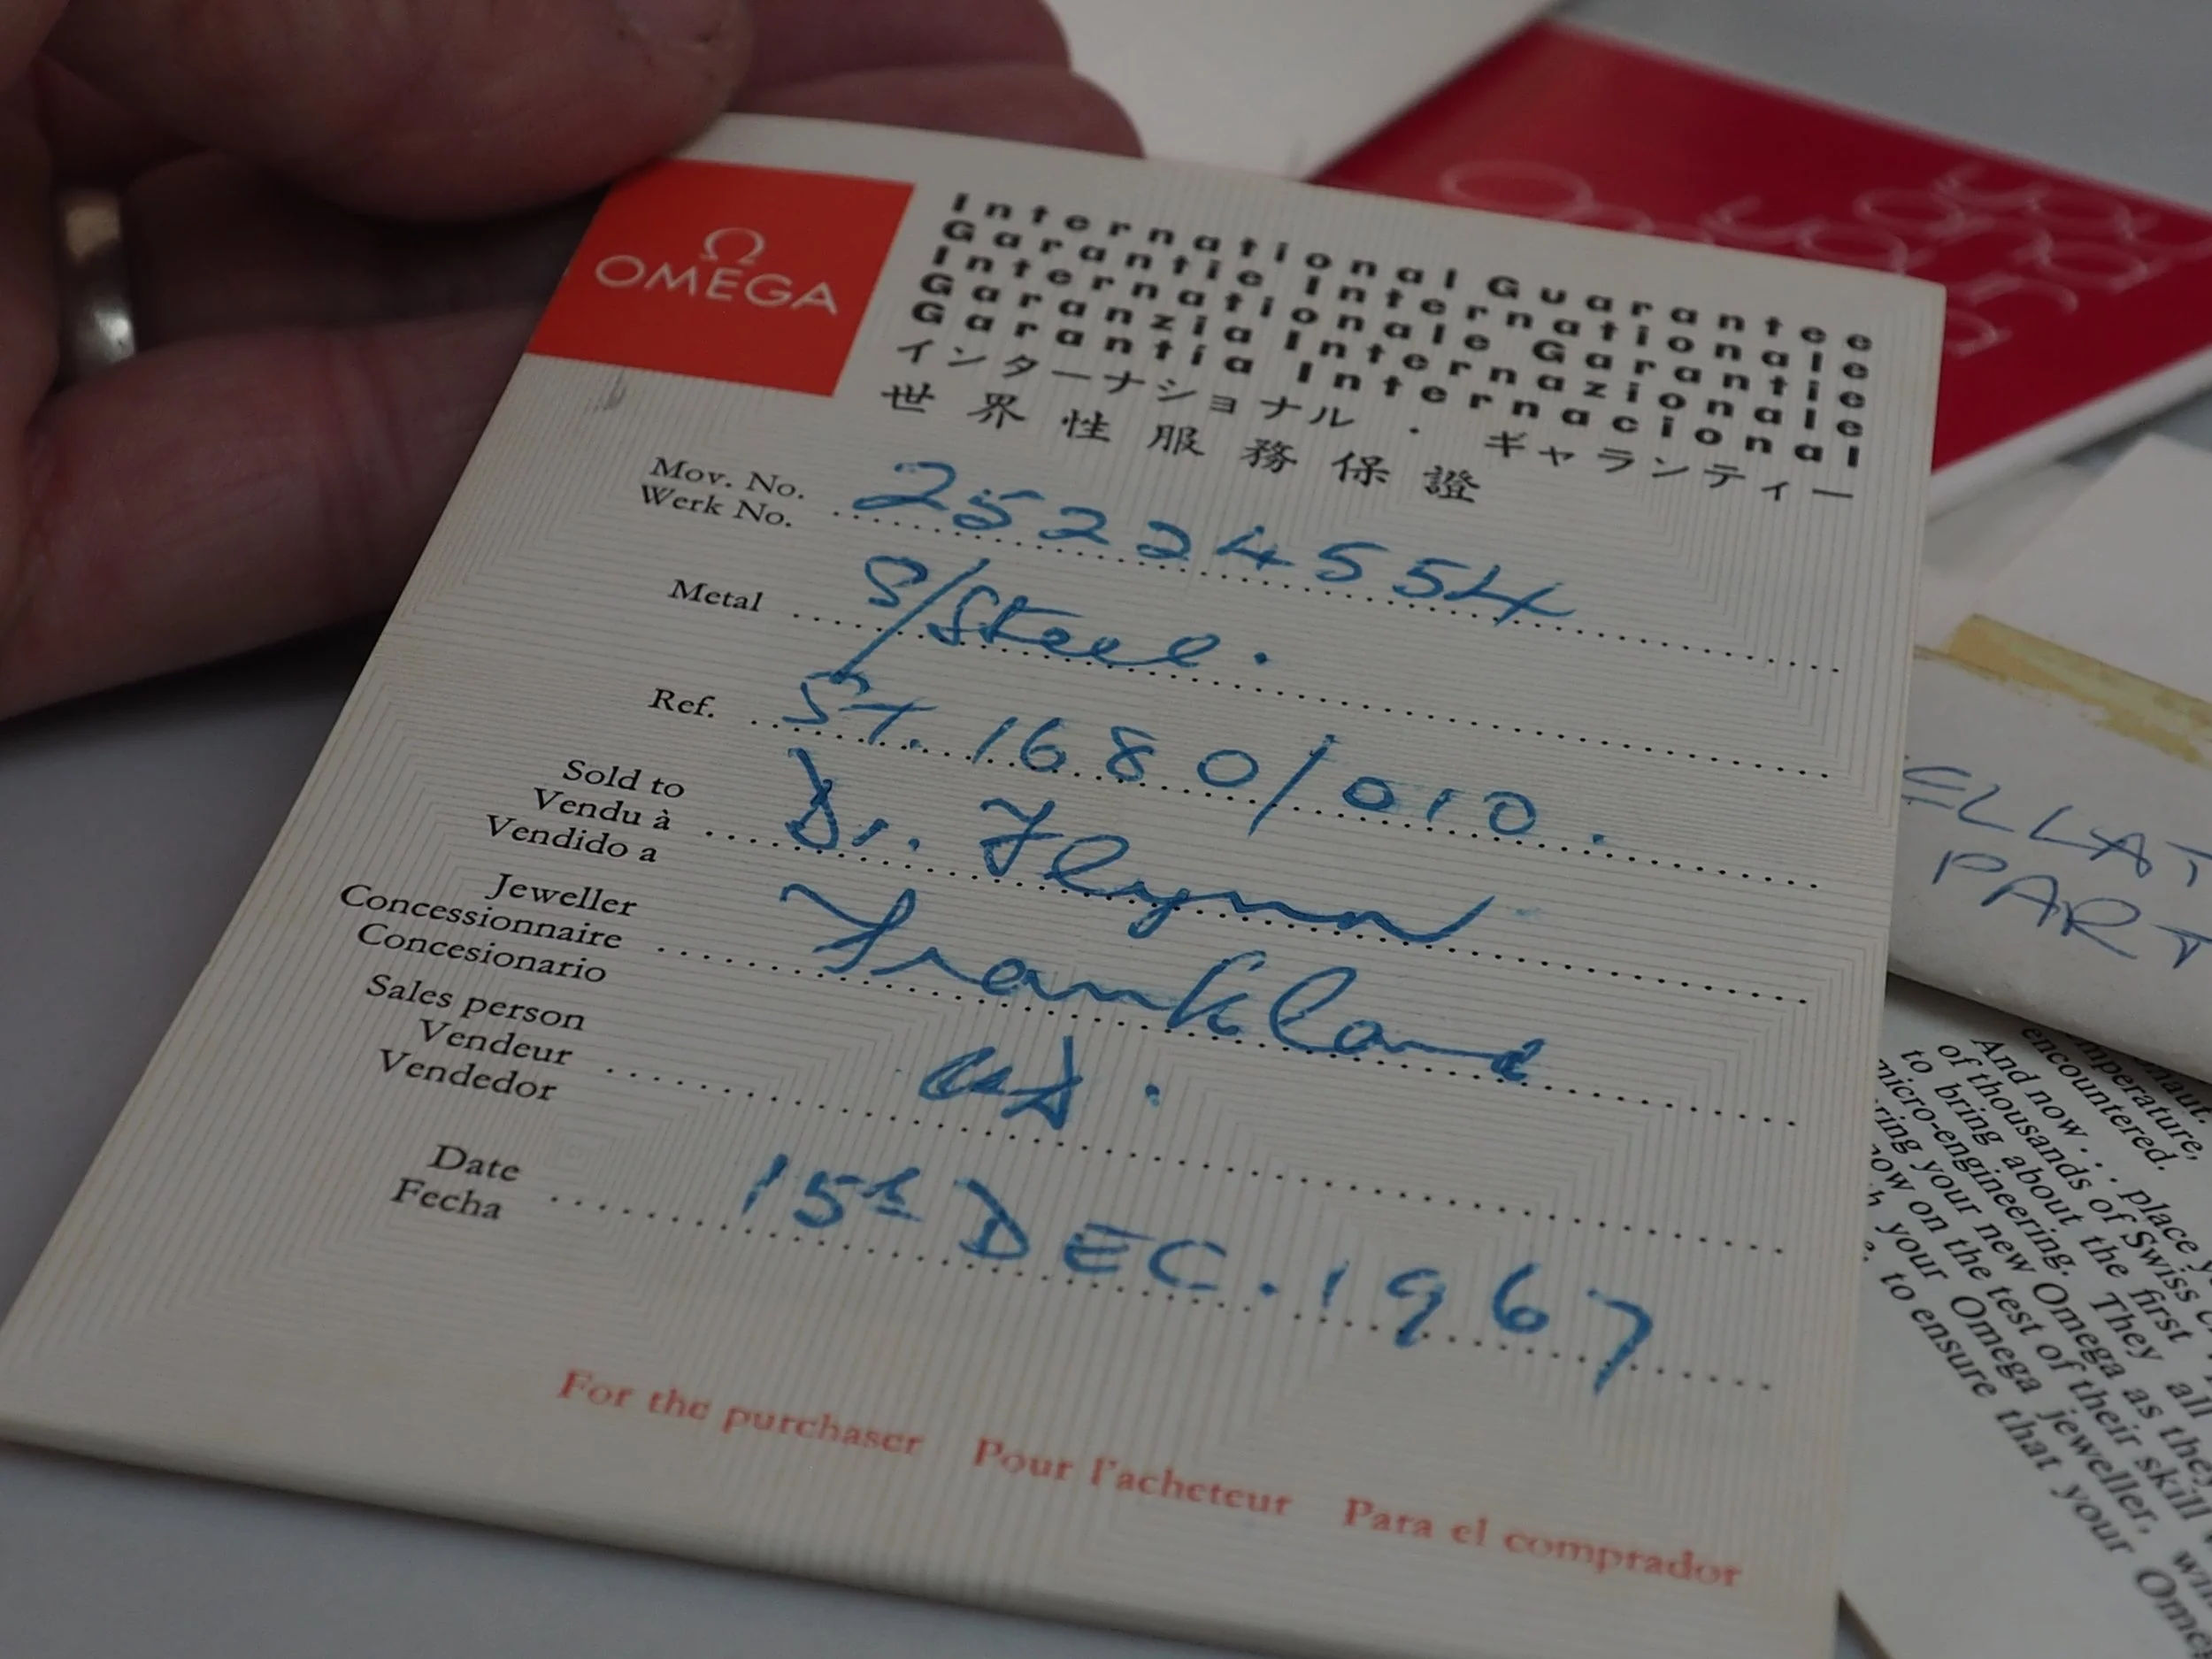 Ω
OMEGA
International Guarantee
Garantie Internationale
Internationale Garantie
Garanzia Internazionale
Garantia Internacional
インターナショナル・ギャランティー
世界性服務保證
Mov. No. 25224554
Werk No.
Metal S/Steel.
Ref. ST. 1680/010.
Sold to
Vendu à Dr. Flynn
Vendido a
Jeweller
Concessionnaire Frankland
Concesionario
Sales person
Vendeur
Vendedor
Date 15th DEC. 1967
Fecha
For the purchaser Pour l'acheteur Para el comprador
ELLAT
PART
temperature,
encountered.
And now... place y
of thousands of Swiss
to bring about the first
micro-engineering. They all
ring your new Omega as the
now on the test of their skill
your Omega jeweller, wi
to ensure that your Ome